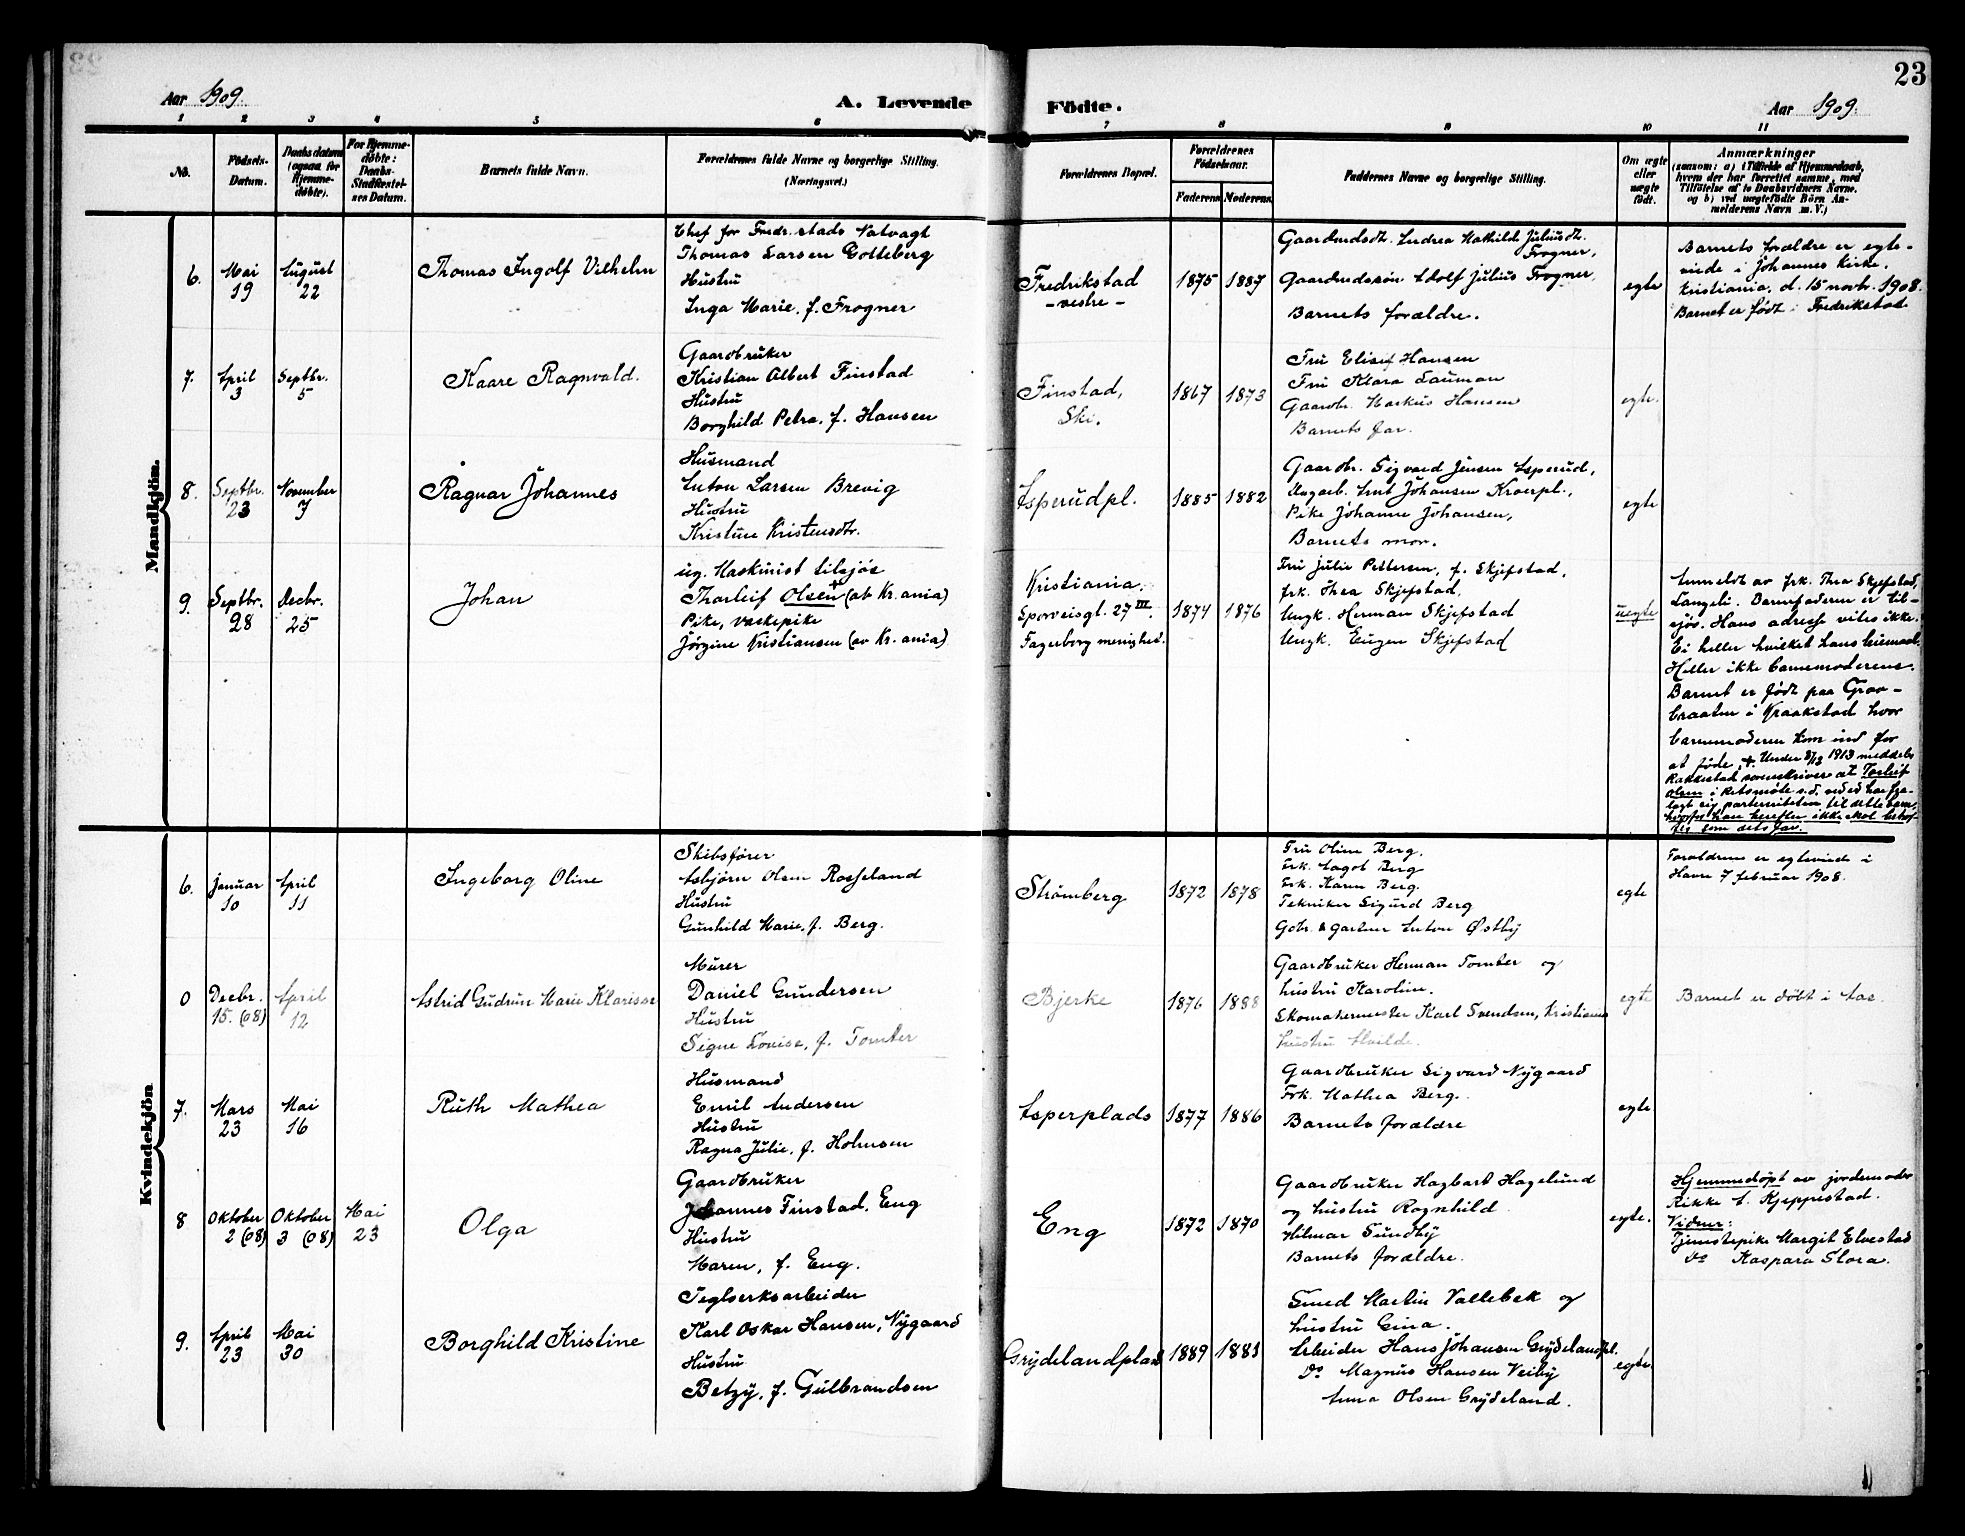 23
Aar 1909.
A. Levende Födte.
Aar 1909.
1 2 3 4 5 6 7 8 9 10 11
No.
Födsels-Datum.
Daabsdatum (ogsaa for Hjemme-döbte).
For Hjemme-döbte: Daabs-Stadfæstel-ses Datum.
Barnets fulde Navn.
Forældrenes fulde Navne og borgerlige Stilling.
(Næringsvei.)
Forældrenes Bopæl.
Forældrenes Födselsaar.
Faderens Moderens
Faddernes Navne og borgerlige Stilling.
Om ægte eller uægte födt.
Anmærkninger
(saasom: a) i Tilfælde af Hjemmedaab,
hvem der har forrettet samme, med
Tilföielse af to Daabsvidners Navne.
og b) ved uægtefödte Börn An-
melderens Navn m. V.)
Mandkjön.
6.
Mai 19
August 22
Thomas Ingolf Vilhelm
Chef for Fredr.stads Natvagt
Thomas Larsen Gotteberg
Hustru
Inga Marie, f. Frogner
Fredrikstad
- vestre -
1875 1887
Gaardmdsdt. Andrea Mathilde Juliusdt.
Frogner,
Gaardmdssøn Adolf Julius Frogner,
Barnets forældre.
egte
Barnets forældre er egte-
viede i Johannes Kirke,
Kristiania, d. 15 novbr. 1908.
Barnet er født i Fredrikstad
7.
April 3
Septbr. 5
Kaare Ragnvald.
Gaardbruker
Kristian Albert Finstad
Hustru
Borghild Petra, f. Hansen
Finstad,
Ski.
1867 1873
Fru Elisef Hansen
Fru Klara Lauman
Gaardbr. Markus Hansen
Barnets far.
egte.
8.
Septbr. 23
November 7
Ragnar Johannes
Husmand
Anton Larsen Brevig
Hustru
Kristine Kristensdtr.
Asperudpl.
1885 1882
Gaardbr. Sigvard Jensen Asperud,
Ungarb. Amt Johansen Kroerpl.,
Pike Johanne Johansen,
Barnets mor.
egte
9.
Septbr. 28
Decbr. 25
Johan
ug. Maskinist tilsjøs
Thorleif Olsen + (av Kr.ania)
Pike, vaskepike
Jørgine Kristiansen (av Kr.ania)
Kristiania.
Sporveisgt. 27 III.
Fagerborg menighet.
1874 1876
Fru Julie Pettersen, f. Skjefstad,
frk. Thea Skjefstad,
Ungk. Herman Skjefstad
Ungk. Eugen Skjefstad
uegte
Anmeldt av frk. Thea Skjefstad,
Langeli. Barnefaderen er til-
sjøs. Hans adresse vites ikke.
Ei heller hvilket hans hiemaal.
Heller ikke barnemoderens.
Barnet er født paa Grav-
braaten i Kraakstad hvor
barnemoderen kom ind for
at føde. +. Under 8/12 1913 meddeles
Rakkestad sorenskriver at Torleif
Olsen i Retsmøte s.d. ved ed har fra-
lagt sig paterniteten til dette barn,
hvorfor han herefter ikke skal beteg-
nes som dets far.
Kvindekjön
6.
Januar 10
April 11
Ingeborg Oline
Skibsfører
Asbjørn Olsen Rosseland
Hustru
Gunhild Marie, f. Berg.
Strømberg
1872 1878
Fru Oline Berg,
Frk. Aagot Berg
Frk. Karen Berg.
Tekniker Sigurd Berg
Gbr. & gartner Anton Østby
egte
Forældrene er egteviede i
Havre 7 februar 1908.
0
Decbr. 15. (08)
April 12
Astrid Gudrun Marie Klarisse
Murer
Daniel Gundersen
Hustru
Signe Lovise, f. Tomter
Bjerke
1876 1888
Gaardbruker Herman Tomter og
hustru Karoline.
Skomakermester Karl Svendsen, Kristiania
hustru Alvilde.
egte
Barnet er døbt i Aas.
7.
Mars 23
Mai 16
Ruth Mathea
Husmand
Emil Andersen
Hustru
Ragna Julie, f. Holmsen
Asperplads
1877 1886
Gaardbruker Sigvard Nygaard
Frk. Mathea Berg.
Barnets forældre
egte
8
Oktober 2 (08)
Oktober 3 (08)
Mai 23
Olga
Gaardbruker
Johannes Finstad, Eng
Hustru
Maren, f. Eng.
Eng
1872 1870
Gaardbruker Hagbart Hagelund
og hustru Ragnhild
Hilmar Sundby
Barnets forældre.
egte.
Hjemmedøpt av jordemoder
Rikke A. Kjeppestad.
Vidner:
Tjenestepike Margit Elvestad
Do Kaspara Slora.
9.
April 23
Mai 30
Borghild Kristine
Teglverksarbeider
Karl Oskar Hansen, Nygaard
Hustru
Betzy, f. Gulbrandsen
Grydelandplads
1889 1881
Smed Martin Vallebek og
hustru Gina.
Arbeider Hans Johansen Grydelandpl.
Do Magnus Hansen Veiby
Anna Olsen Grydeland.
egte.